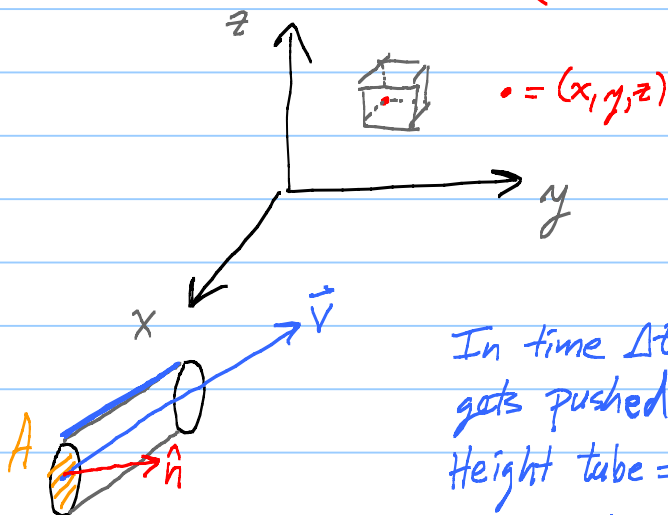 z
• = (x, y, z)
y
x
V⃗
In time Δt
gets pushed
A
n̂
Height tube =